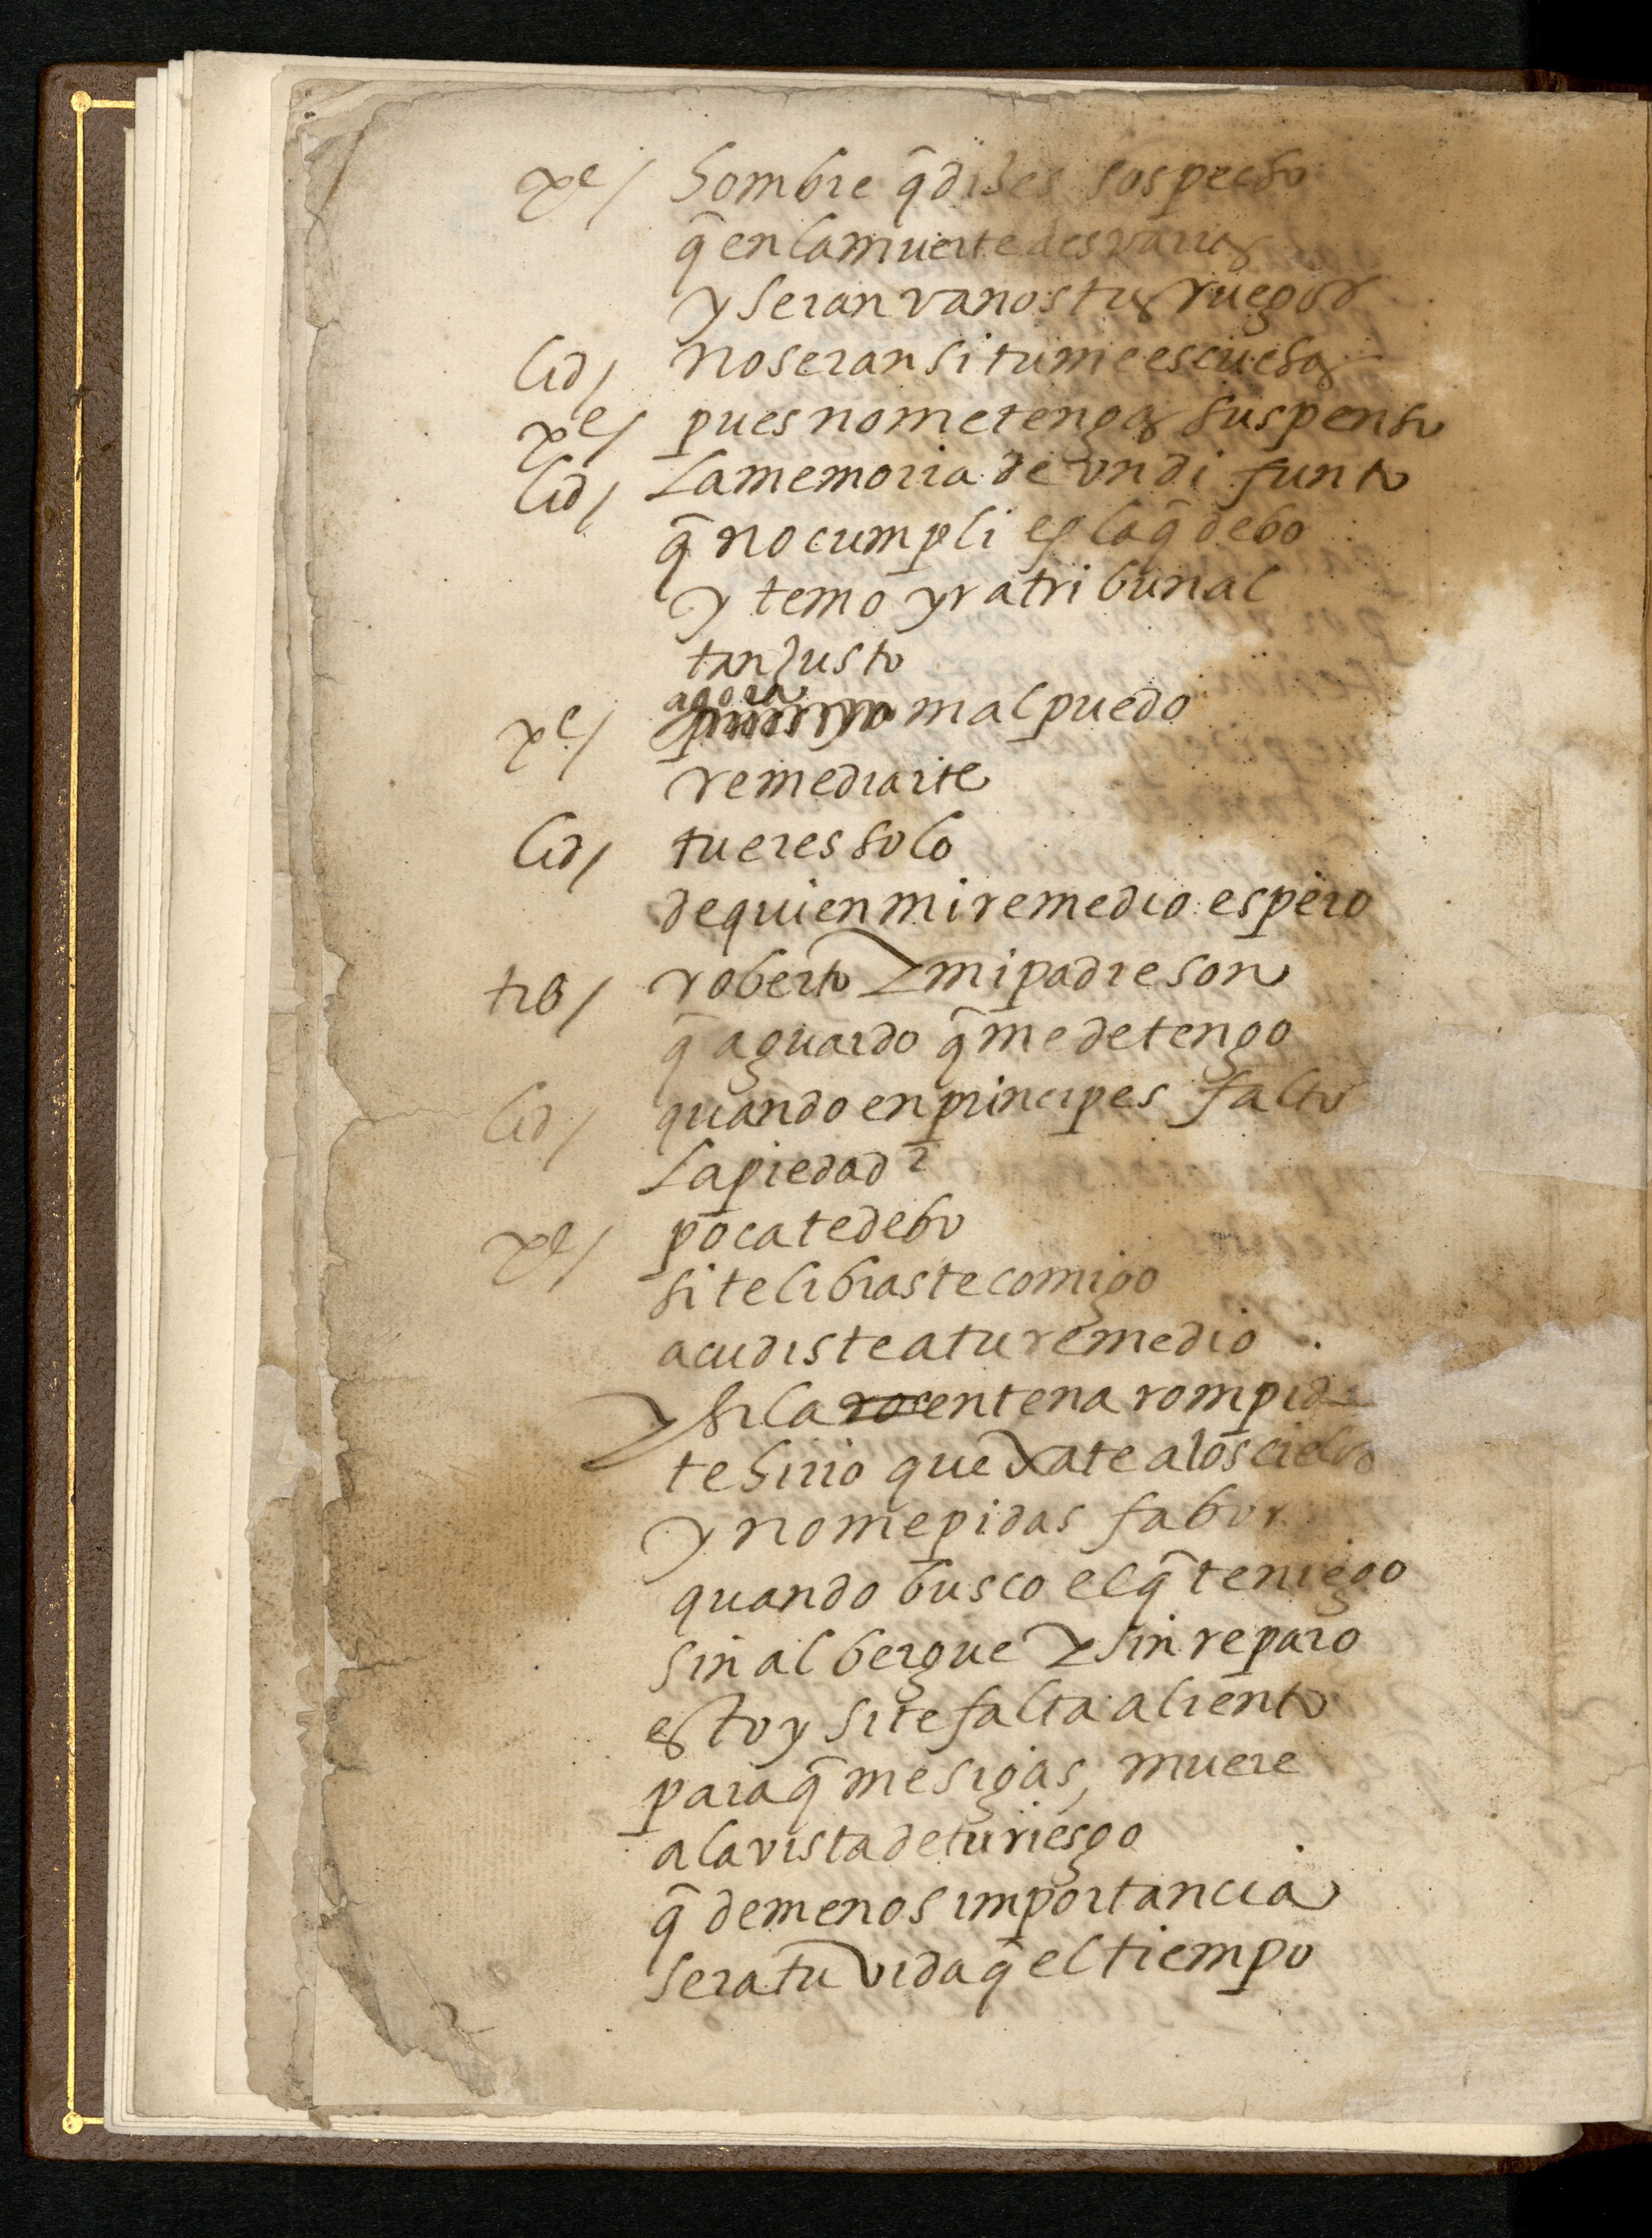 xe/ hombre q̃ dises sospecho
q̃ en la muerte desvarias
y seran vanos tus ruegos
lid/ no seran si tu me escuchas
xe/ pues no me tengas suspenso
lid/ La memoria de un difunto
q̃ no cumpli es la q̃ debo
y temo yr a tribunal
tan Justo
agora
xe/ mal puedo
remediarte
lid/ tu eres solo
de quien mi remedio espero
trs/ roberto y mi padre son
q̃ aguardo q̃ me detengo
lid/ quando en principes falto
La piedad
xe/ poca te debo
si te libraste comigo
acudiste a tu remedio
y si la entena rompida
te hirio quexate a los cielos
y no me pidas fabor
quando busco el q̃ te niego
sin albergue y sin reparo
estoy si te falta aliento
para q̃ me sigas, muere
a la vista de tu riesgo
q̃ de menos importancia
sera tu vida q̃ el tiempo